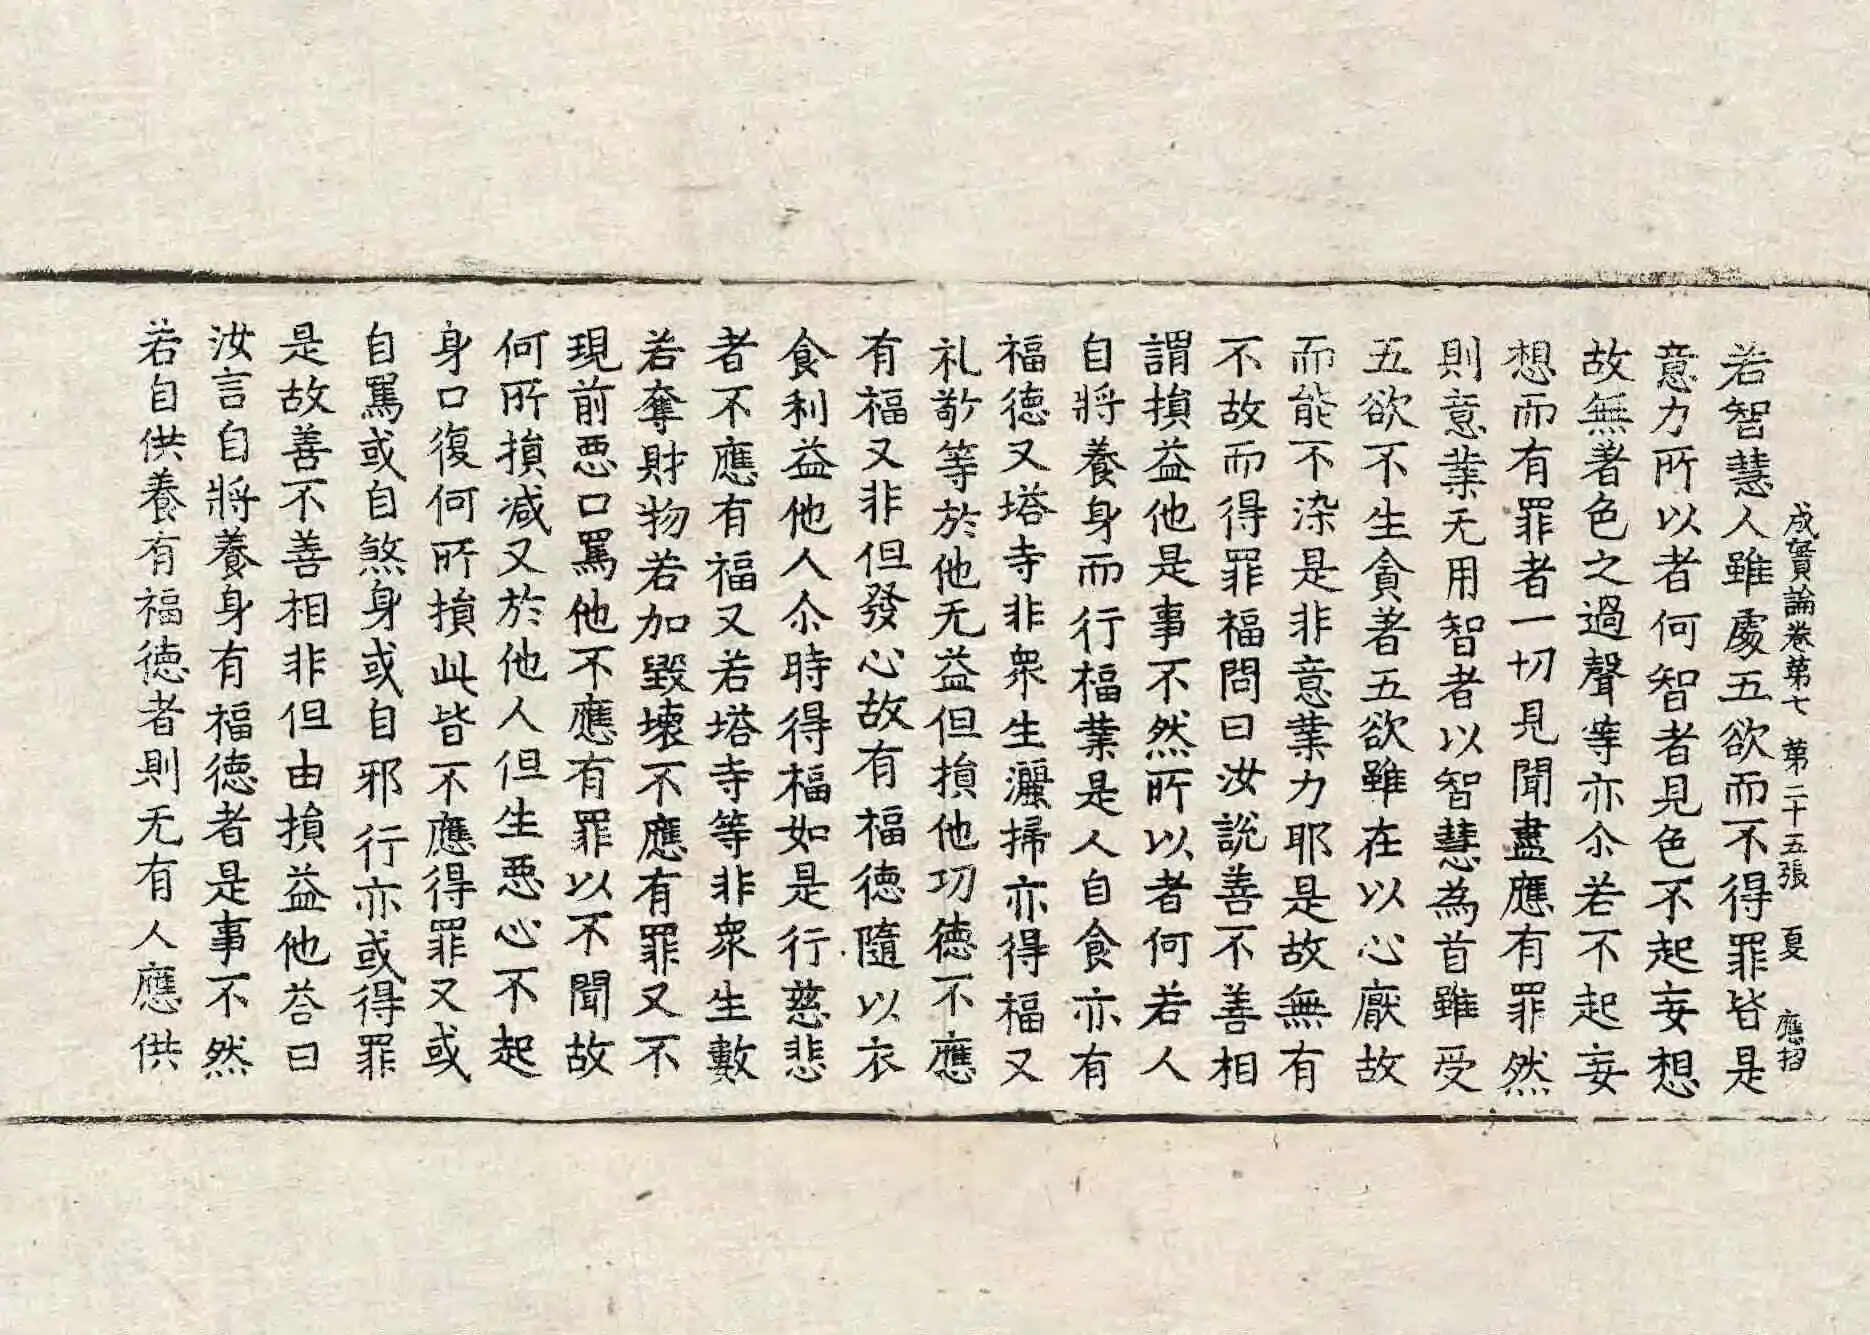 成實論卷第七 第二十五張 夏 應招
若智慧人雖處五欲而不得罪皆是
意力所以者何智者見色不起妄想
故無著色之過聲等亦尒若不起妄
想而有罪者一切見聞盡應有罪然
則意業无用智者以智慧為首雖受
五欲不生貪著五欲雖在以心厭故
而能不染是非意業力耶是故無有
不故而得罪福問曰汝說善不善相
謂損益他是事不然所以者何若人
自將養身而行福業是人自食亦有
福德又塔寺非衆生灑掃亦得福又
礼敬等於他无益但損他功德不應
有福又非但發心故有福德隨以衣
食利益他人尒時得福如是行慈悲
者不應有福又若塔寺等非衆生數
若奪財物若加毀壞不應有罪又不
現前惡口罵他不應有罪以不聞故
何所損減又於他人但生惡心不起
身口復何所損此皆不應得罪又或
自罵或自煞身或自邪行亦或得罪
是故善不善相非但由損益他荅曰
汝言自將養身有福德者是事不然
若自供養有福德者則无有人應供